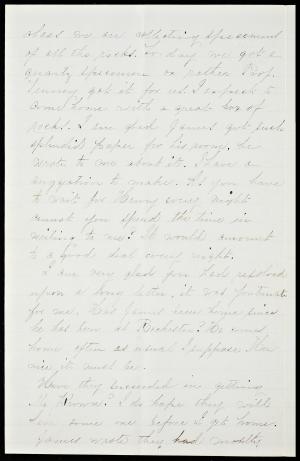 class we are collecting specimens
of all the rocks. To day we got a
quartz specimen or rather Prof.
Tenney got it for us. I expect to
come home with a great box of
rocks. I am glad James got such
splendid paper for his room, he
wrote to me about it. I have a
suggestion to make. As you have
to wait for Henry every night
cannot you spend the time in
writing to me? It would amount
to a good deal every night.
I am very glad you had resolved
upon a long letter, it was fortunate
for me. Has James been home since
he has been at Rochester? He comes
home often as usual I suppose. How
nice it must be.
Have they succeeded in getting
Mr Brown? I do hope they will
have some one before I get home.
James wrote they had mostly